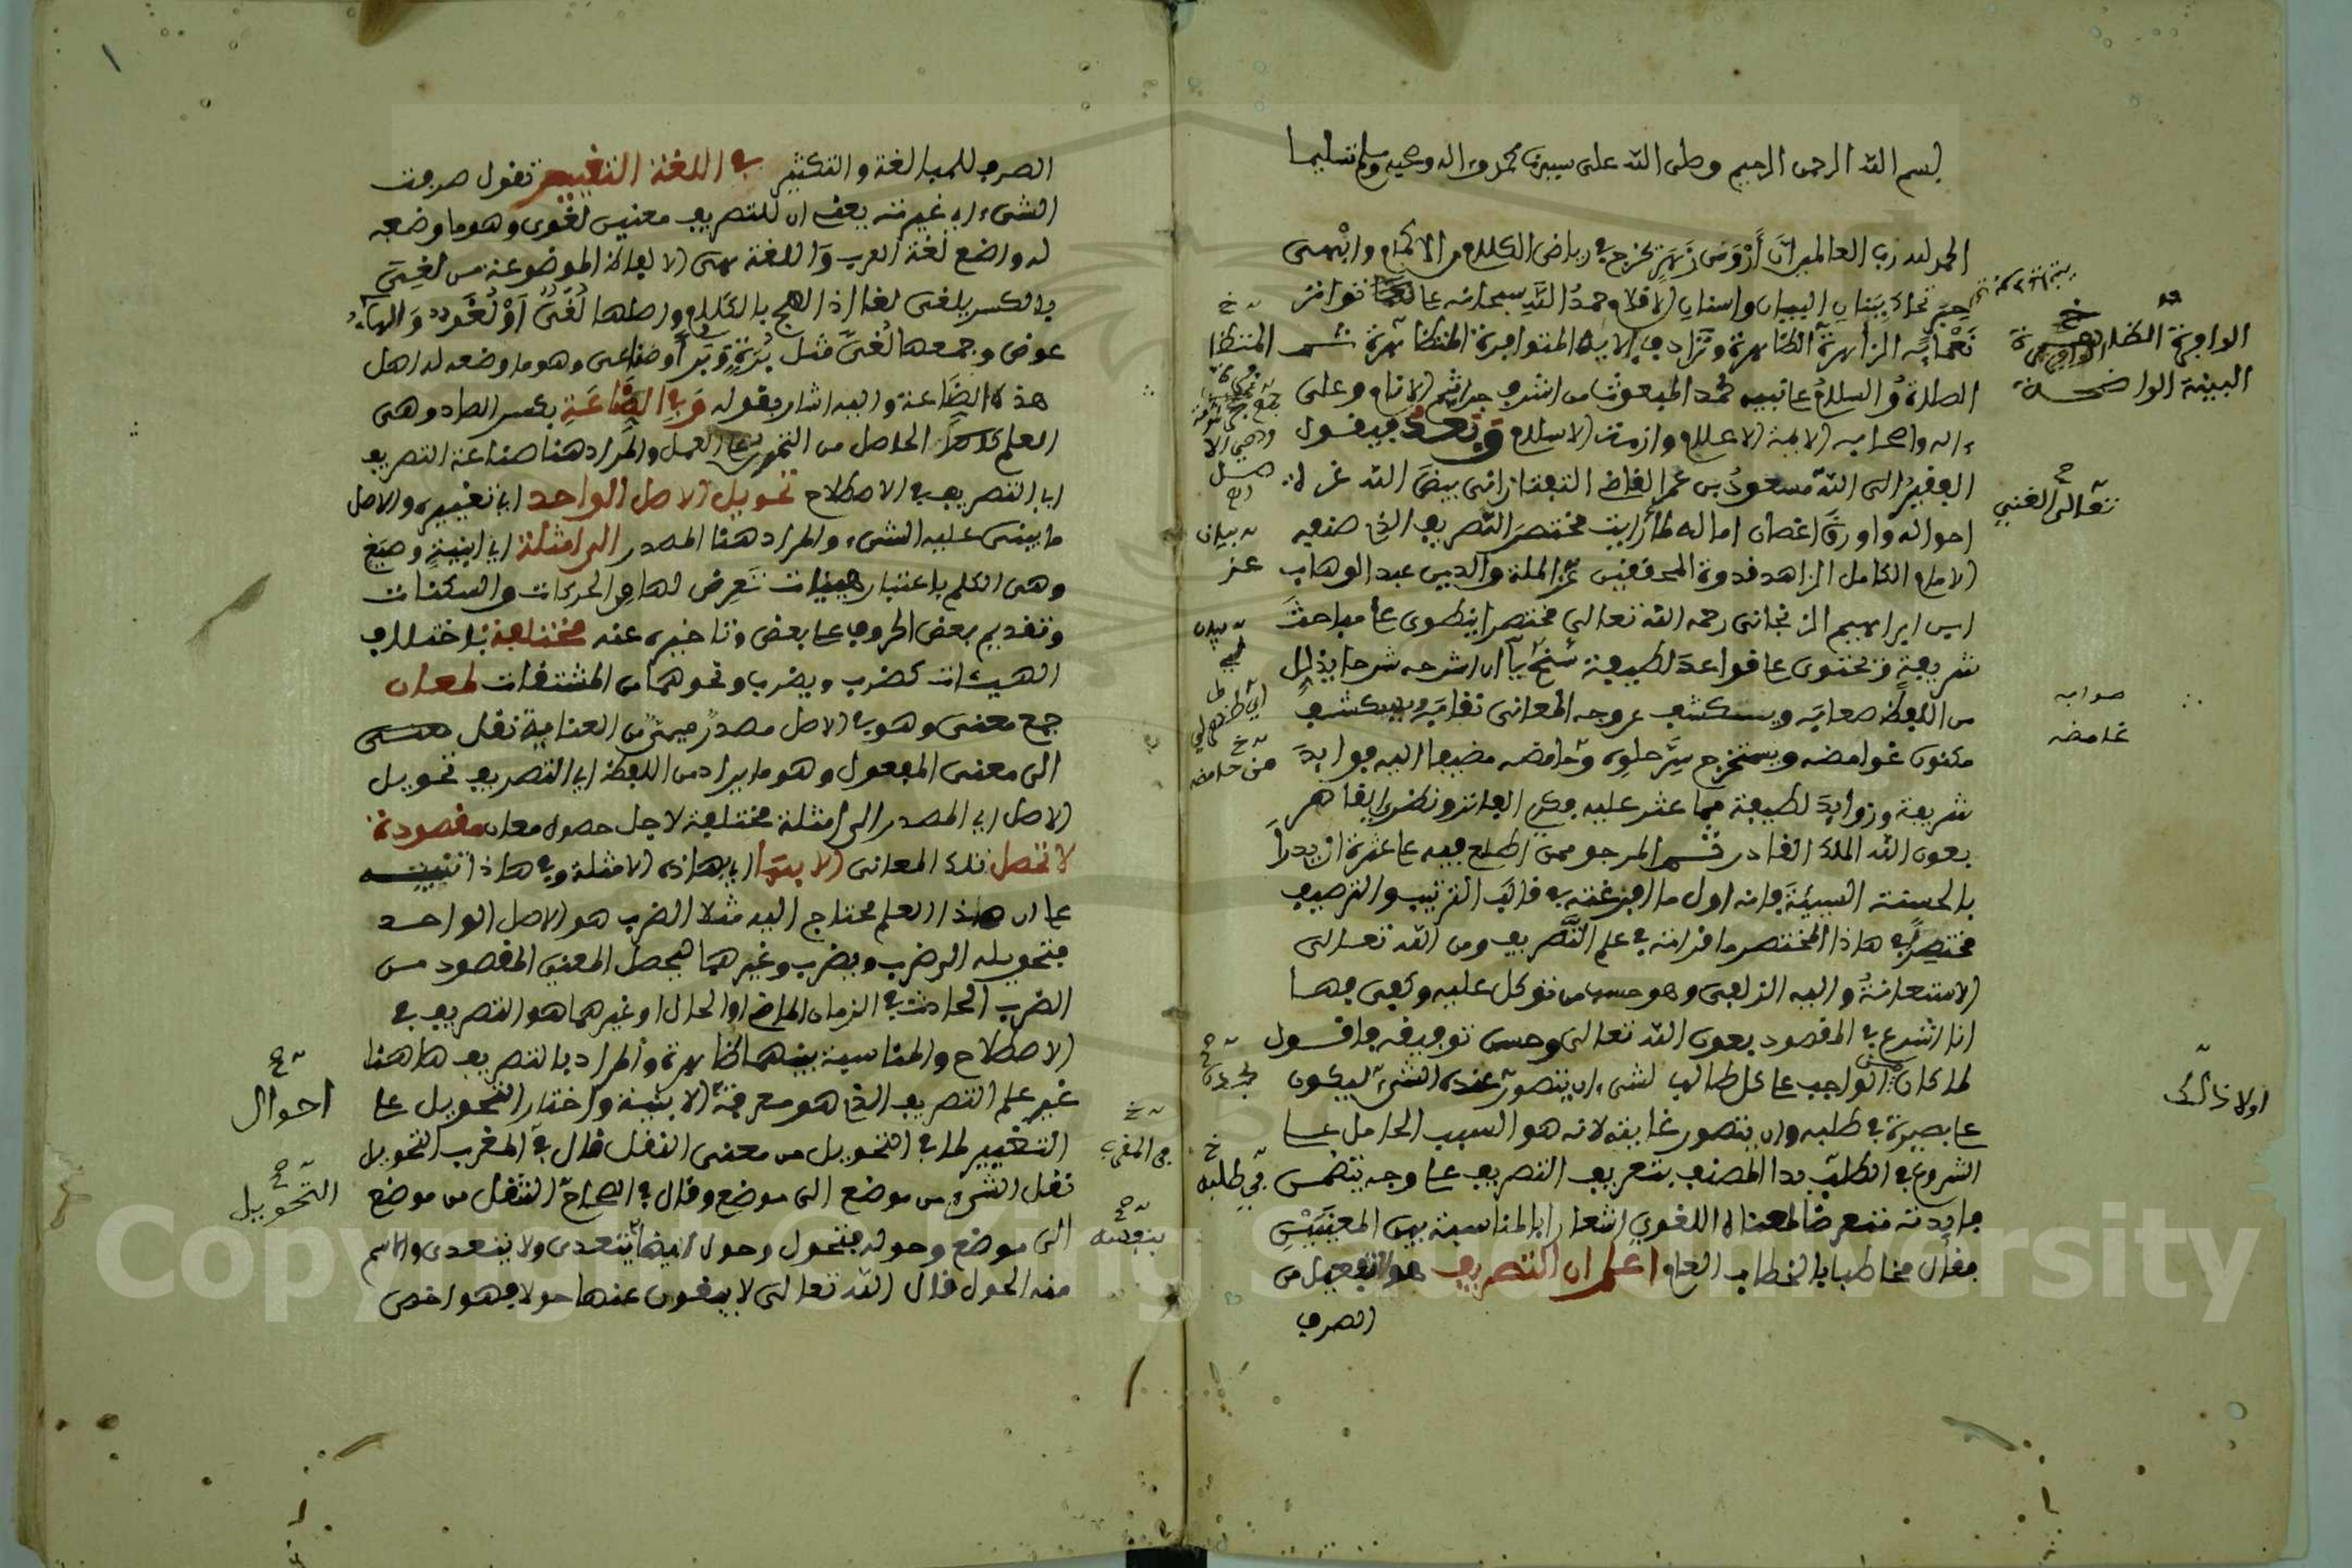 بسم الله الرحمن الرحيم وصلى الله على سيدنا محمد وءاله وصحبه وسلم تسليما
الحمد لله رب العالمين ان أروى زهر تخرج في رياض الكلام من الاكمام وابهى
حبر تحاك ببنان البيان واسنان الاقلام حمد الله سبحانه على تواتر
نعمائه الزاهرة الظاهرة وترادف ءالائه المتوافرة المتظاهرة ثم
الصلاة والسلام على نبيه محمد المبعوث من اشرف جراثيم الانام وعلى
ءاله واصحابه الايمة الاعلام وازمة الاسلام وبعد فيقول
الفقير الى الله مسعود بن عمر القاضي التفتازاني بيض الله غرة
احواله واورق اغصان اماله لما رأيت مختصر التصريف الذي صنفه
الامام الكامل الزاهد قدوة المحققين عز الملة والدين عبد الوهاب
ابن ابراهيم الزنجاني رحمه الله تعالى مختصرا ينطوي على مباحث
شريفة ويحتوي على قواعد لطيفة سنح لي ان اشرحه شرحا يذلل
من اللفظ صعابه ويكشف عن وجه المعاني نقابه ويستكشف
مكنون غوامضه ويستخرج سر حلوه وحامضه مضيفا اليه فوايد
شريفة وزوايد لطيفة مما عثر عليه فكري الفاتر ونظري القاصر
بعون الله الملك القادر المرجو ممن اطلع فيه على عثرة ان يدرأ
بالحسنة السيئة فانه اول ما افرغته في قالب الترتيب والترصيف
مختصرا في هاذا المختصر ما قرأته في علم التصريف ومن الله تعالى
الاستعانة واليه الزلفى وهو حسب من توكل عليه وكفى فها
انا اشرع في المقصود بعون الله تعالى وحسن توفيقه فاقول
لما كان من الواجب على كل طالب لشيء ان يتصور ذلك الشيء ليكون
على بصيرة في طلبه وان يتصور غايته لانه هو السبب الحامل على
الشروع في الطلب بدا المصنف بتعريف التصريف على وجه يتضمن
فايدته متعرضا لمعناه اللغوي اشعارا بالمناسبة بين المعنيين
فقال مخاطبا بالخطاب العام اعلم ان التصريف هو تفعيل من
الصرف
تعالى الغني
صوابه
غامضه
اولا ذالك
في طلبه
الصرف للمبالغة والتكثير في اللغة التغيير تقول صرفت
الشيء اي غيرته يعني ان للتصريف معنيين لغوي وهو ما وضعه
له واضع لغة العرب واللغة هي الالفاظ الموضوعة من لغي
بالكسر يلغى لغا اذا لهج بالكلام واصلها لغي او لغو والهاء
عوض وجمعها لغى مثل برة وبرى وصناعي وهو ما وضعه له اهل
هذه الصناعة واليه اشار بقوله وفي الصناعة بكسر الصاد وهي
العلم الحاصل من التمرن على العمل والمراد هنا صناعة التصريف
اي التصريف في الاصطلاح تحويل الاصل الواحد اي تغييره والاصل
ما يبنى عليه الشيء والمراد هنا المصدر الى امثلة اي ابنية وصيغ
وهي الكلم باعتبار هيئات تعرض لها من الحركات والسكنات
وتقديم بعض الحروف على بعض وتاخيره عنه مختلفة باختلاف
الهيئات كضرب ويضرب ونحوهما من المشتقات لمعان
جمع معنى وهو في الاصل مصدر ميمي من العناية نقل
الى معنى المفعول وهو ما يراد من اللفظ اي التصريف تحويل
الاصل اي المصدر الى امثلة مختلفة لاجل حصول معان مقصودة
لا تحصل تلك المعاني الا بها اي بهاذه الامثلة وفي هاذا تنبيه
على ان هاذا العلم محتاج اليه مثلا الضرب هو الاصل الواحد
فتحويله الى ضرب ويضرب وغيرهما لتحصل المعنى المقصود من
الضرب الحادث في الزمان الماضي او الحال او غيرهما هو التصريف في
الاصطلاح والمناسبة بينهما ظاهرة والمراد بالتصريف هاهنا
غير علم التصريف الذي هو معرفة الابنية واختار التحويل على
التغيير لما في التحويل من معنى النقل قال في المغرب التحويل
نقل الشيء من موضع الى موضع وقال في الصحاح التنقل من موضع
الى موضع وحوله فتحول وحول ايضا يتعدى ولا يتعدى والاسم
منه الحول قال الله تعالى لا يبغون عنها حولا فهو اخص
احوال
التحويل
في المغرب
Copyright © King Saud University